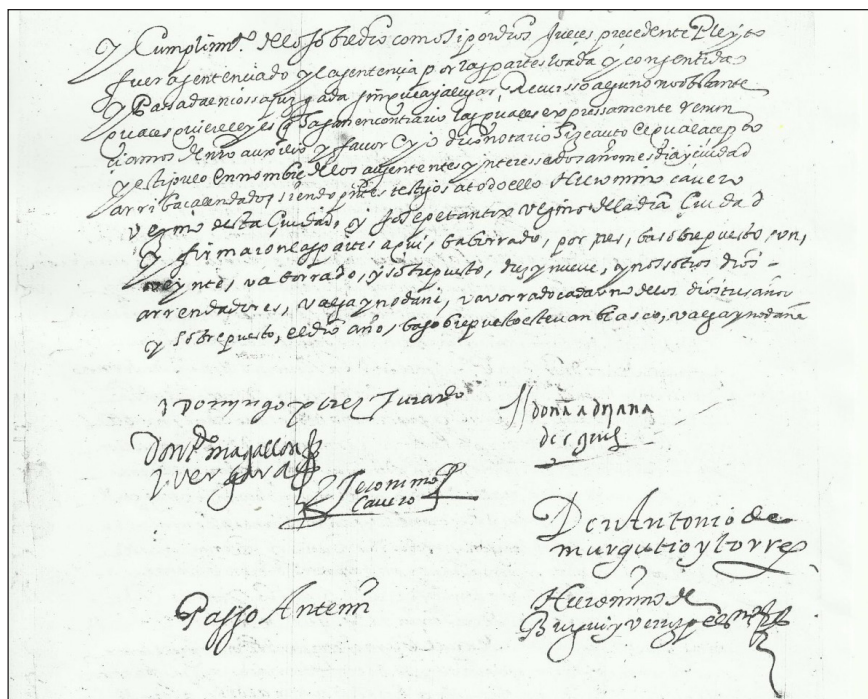 y Cumplimto. dello sobredho como si por dhos Jueces precedente Pleyto
fuera sentenciado y la sentencia por las partes loada y consentida
y Passada en cossa juzgada sin que aya lugar Recursso alguno no obstante
quales quiere leyes q hagan en contrario las quales expressamente renun
ciamos de nro auxilio y favor E yo dho notario hize auto el qual acepto
y estipulo en nombre de los ausentes y interessados año mes dia y ciudad
arriba calendados siendo pntes testigos a todo ello Hieronimo cavero
vezino desta Ciudad, y Josepe vezino de la dha Ciudad
y firmaron las partes aqui, ba borrado, por tres, ba sobrepuesto, un,
veynte, va borrado, y sobrepuesto, diez y nueve, y nosotros dhos
arrendadores, valga y no dañe, va vorrado cada uno de los dhos tres años
y sobrepuesto, el dho año, ba sobrepuesto estevan blasco, valga y no dañe
Domingo perez Jurado
doña adriana
Don Po magallon
y vergara
Jeronimo
Cavero
Don Antonio de
murgutio y torres
Passo Antemi
Hieronimo de